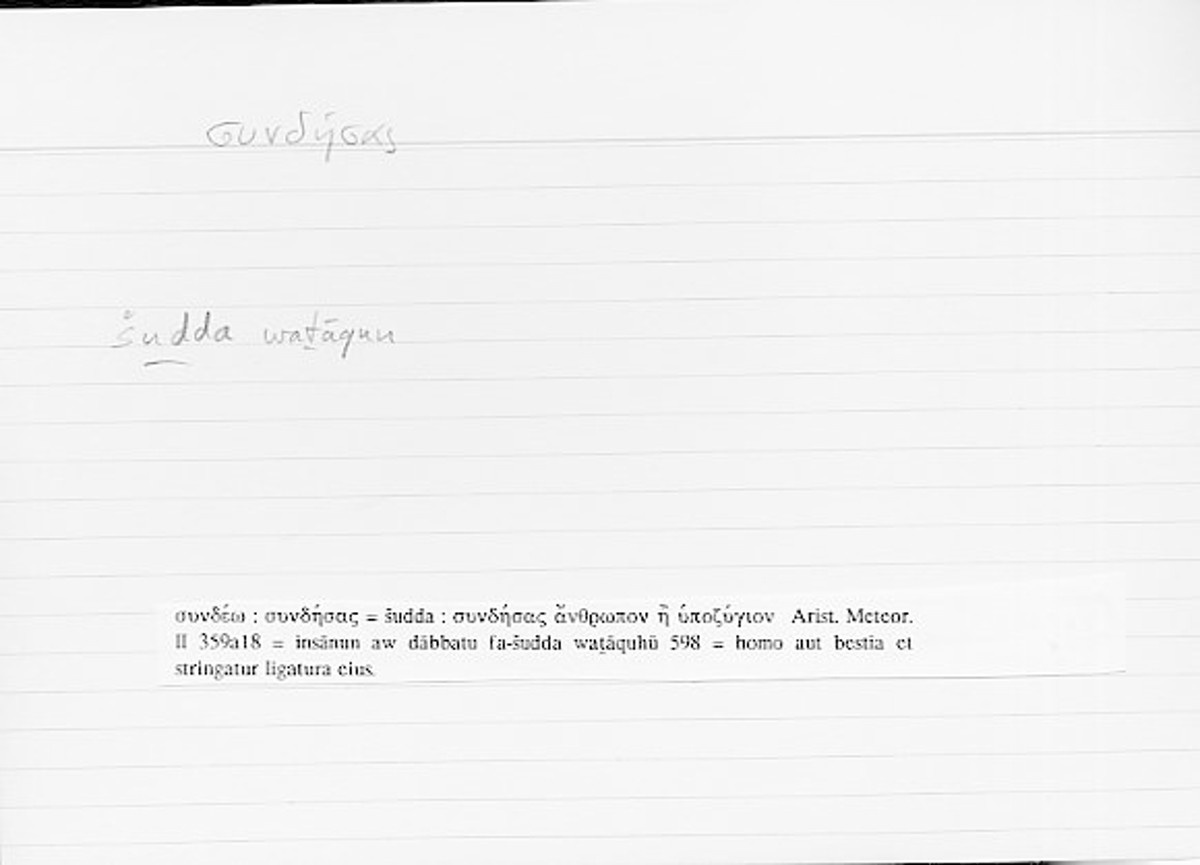 συνδήσας
šudda waṯāqun
συνδέω : συνδήσας = šudda : συνδήσας ἄνθρωπον ἢ ὑποζύγιον Arist. Meteor.
II 359a18 = insānun aw dābbatu fa-šudda waṯāquhū 598 = homo aut bestia et
stringatur ligatura eius.